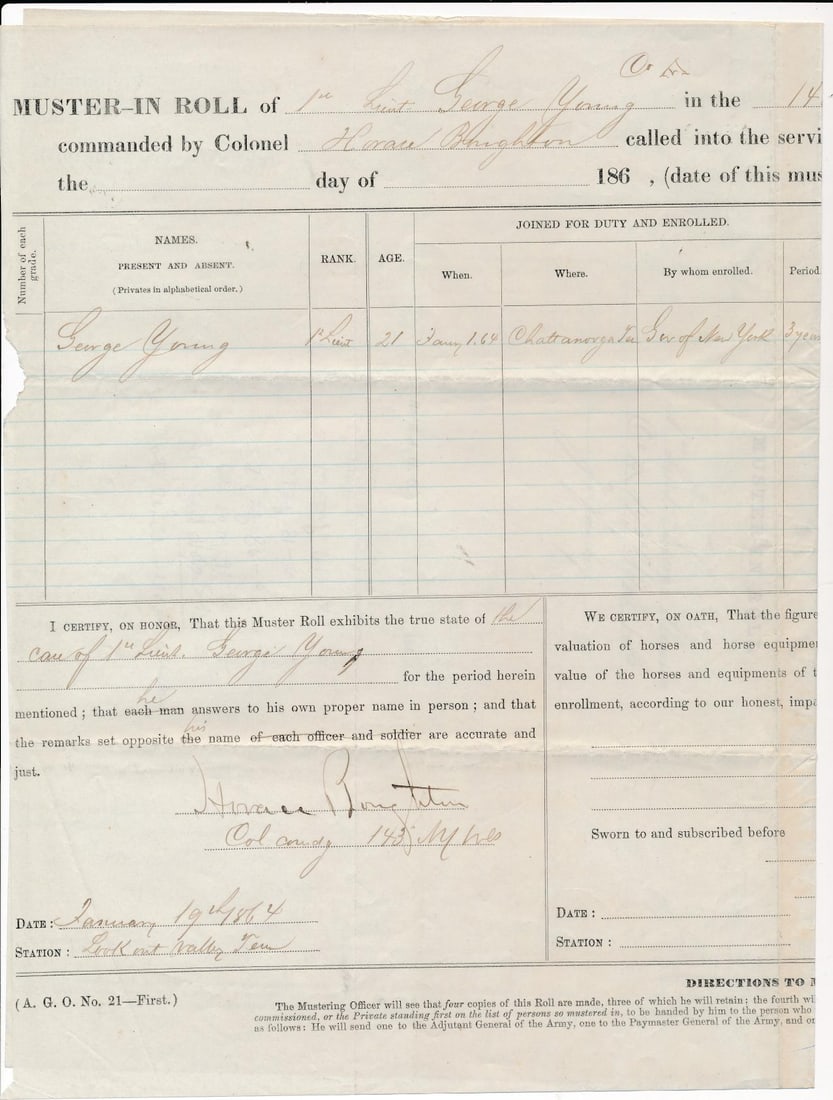 Co
MUSTER-IN ROLL of 1st Lieut George Young in the 14
commanded by Colonel Horace Boughton called into the servi
the day of 186 , (date of this mus
Number of each grade.
NAMES.
PRESENT AND ABSENT.
(Privates in alphabetical order.)
RANK.
AGE.
JOINED FOR DUTY AND ENROLLED.
When.
Where.
By whom enrolled.
Period
George Young 1st Lieut 21 Jany 1. 64 Chattanooga Ten Gov of New York 3 years
I CERTIFY, ON HONOR, That this Muster Roll exhibits the true state of the
case of 1st Lieut. George Young
for the period herein
he
mentioned ; that each man answers to his own proper name in person ; and that
his
the remarks set opposite the name of each officer and soldier are accurate and
just.
Horace Boughton
Col comdg 143 NY Vols
DATE : January 19th 1864
STATION : Look out Valley Tenn
WE CERTIFY, ON OATH, That the figure
valuation of horses and horse equipme
value of the horses and equipments of t
enrollment, according to our honest, impa
Sworn to and subscribed before
DATE :
STATION :
DIRECTIONS TO M
(A. G. O. No. 21—First.)
The Mustering Officer will see that four copies of this Roll are made, three of which he will retain: the fourth wi
commissioned, or the Private standing first on the list of persons so mustered in, to be handed by him to the person who
as follows: He will send one to the Adjutant General of the Army, one to the Paymaster General of the Army, and or